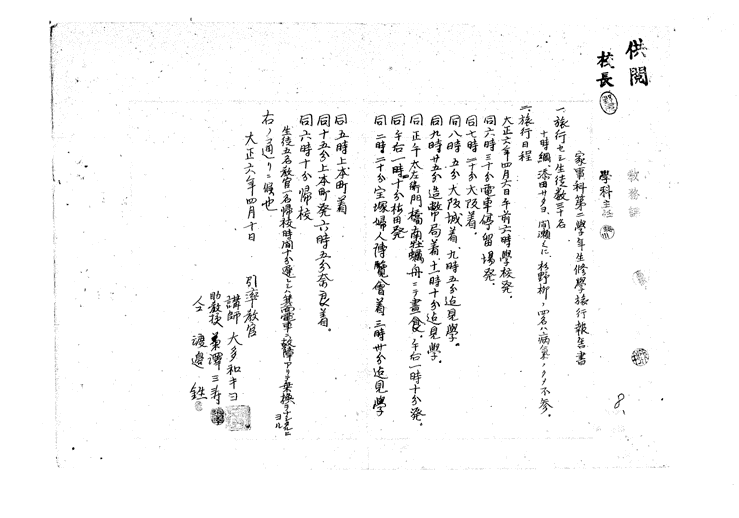 供閲
校長
學科主任
家事科第二學年生修學旅行報告書
一、旅行セシ生徒数三十名
十時綱、漆田サダヨ、間瀬くに、杉野柳ノ四名ハ病氣ノタメ不参。
二、旅行日程
大正六年四月六日午前六時學校発、
同六時三十分電車停留場発、
同七時二十分大阪着。
同八時五分大阪城着、九時五分迄見學。
同九時廿五分造幣局着、十一時十分迄見學。
同正午太左衛門橋南牡蠣舟ニテ晝食、午后一時十分発。
同午后一時十分梅田発
同二時二十分宝塚婦人博覧會着三時廿分迄見學
同五時上本町着
同十五分上本町発六時五分奈良着。
同六時十分帰校
生徒五名教官一名帰校時間十分遅レシハ箕面電車ノ故障アリテ乗換ヲナセシニヨル
右ノ通リニ候也
大正六年四月十日
引率教官
講師 大多和キヨ
助教授 兼澤三寿
仝 渡邉
8、